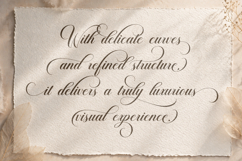 With delicate curves
and refined structure,
it delivers a truly luxurious
visual experience.